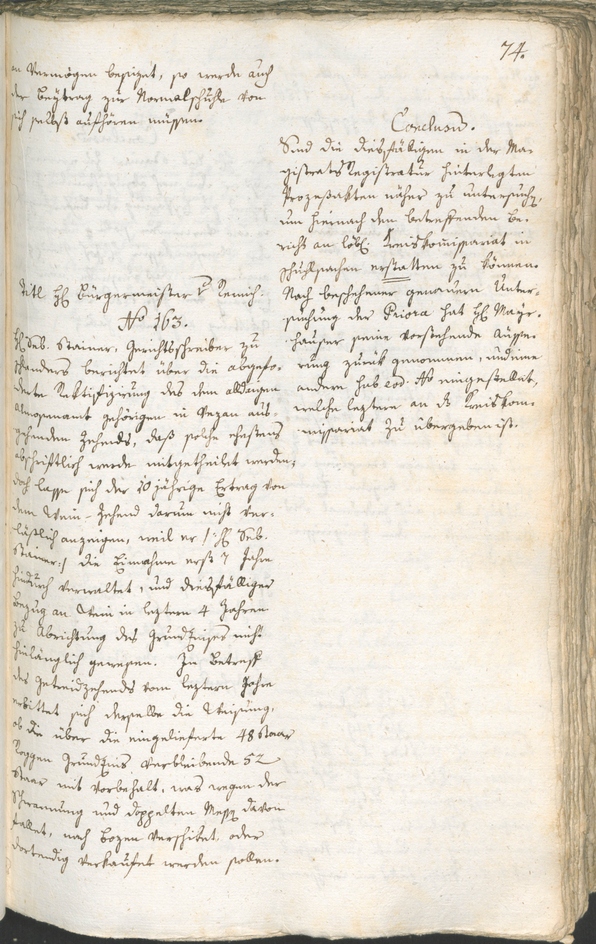 74.
an Vermögen besizet, so werde auch
der Beÿtrag zur Normalschule von
sich selbst aufhören müssen.
Conclusum.
Sind die diesfälligen in der Ma-
gistrats Registratur hinterlegten
Prozeßakten näher zu untersuchen,
um hiernach den betreffenden Be-
richt an löbl: Kreiskommissariat in
Schulsachen erstatten zu können.
Nach beschehener genauern Unter-
suchung der Priora hat H: Mayr-
hauser seine vorstehende Äusse-
rung zurük genommen, und eine
andere sub eod: No eingestellet,
welche leztere an das Kreiskom-
missariat zu übergeben ist.
Titl H: Bürgermeister v Remich.
No 163.
H: Seb. Stainer, Gerichtsschreiber zu
Schlanders berichtet über die abgefo-
derte Rektifizirung des dem alldasigen
Amt gehörigen in Vezan aus-
gehenden Zehends, daß solche ehestens
abschriftlich werde mitgetheilt werden,
doch lasse sich der 10 jährige Ertrag von
dem Wein-Zehend darum nicht ver-
läßlich anzeigen, weil er /: H: Seb.
Stainer :/ die Einnahme erst 7 Jahre
hindurch verwaltet, und diesfälliger
Bezug an Wein in leztern 4 Jahren
zu Abrichtung des Grundzinses nicht
hinlänglich gewesen. In Betreff
des Getreidzehends vom leztern Jahre
erbittet sich derselbe die Weisung,
ob die über die eingelieferte 48 Staar
Roggen Grundzins verbleibende 52
Staar mit Vorbehalt, was wegen der
und doppelten Mess davon
fallet, nach Bozen verschiket, oder
dortendig verkaufet werden sollen.